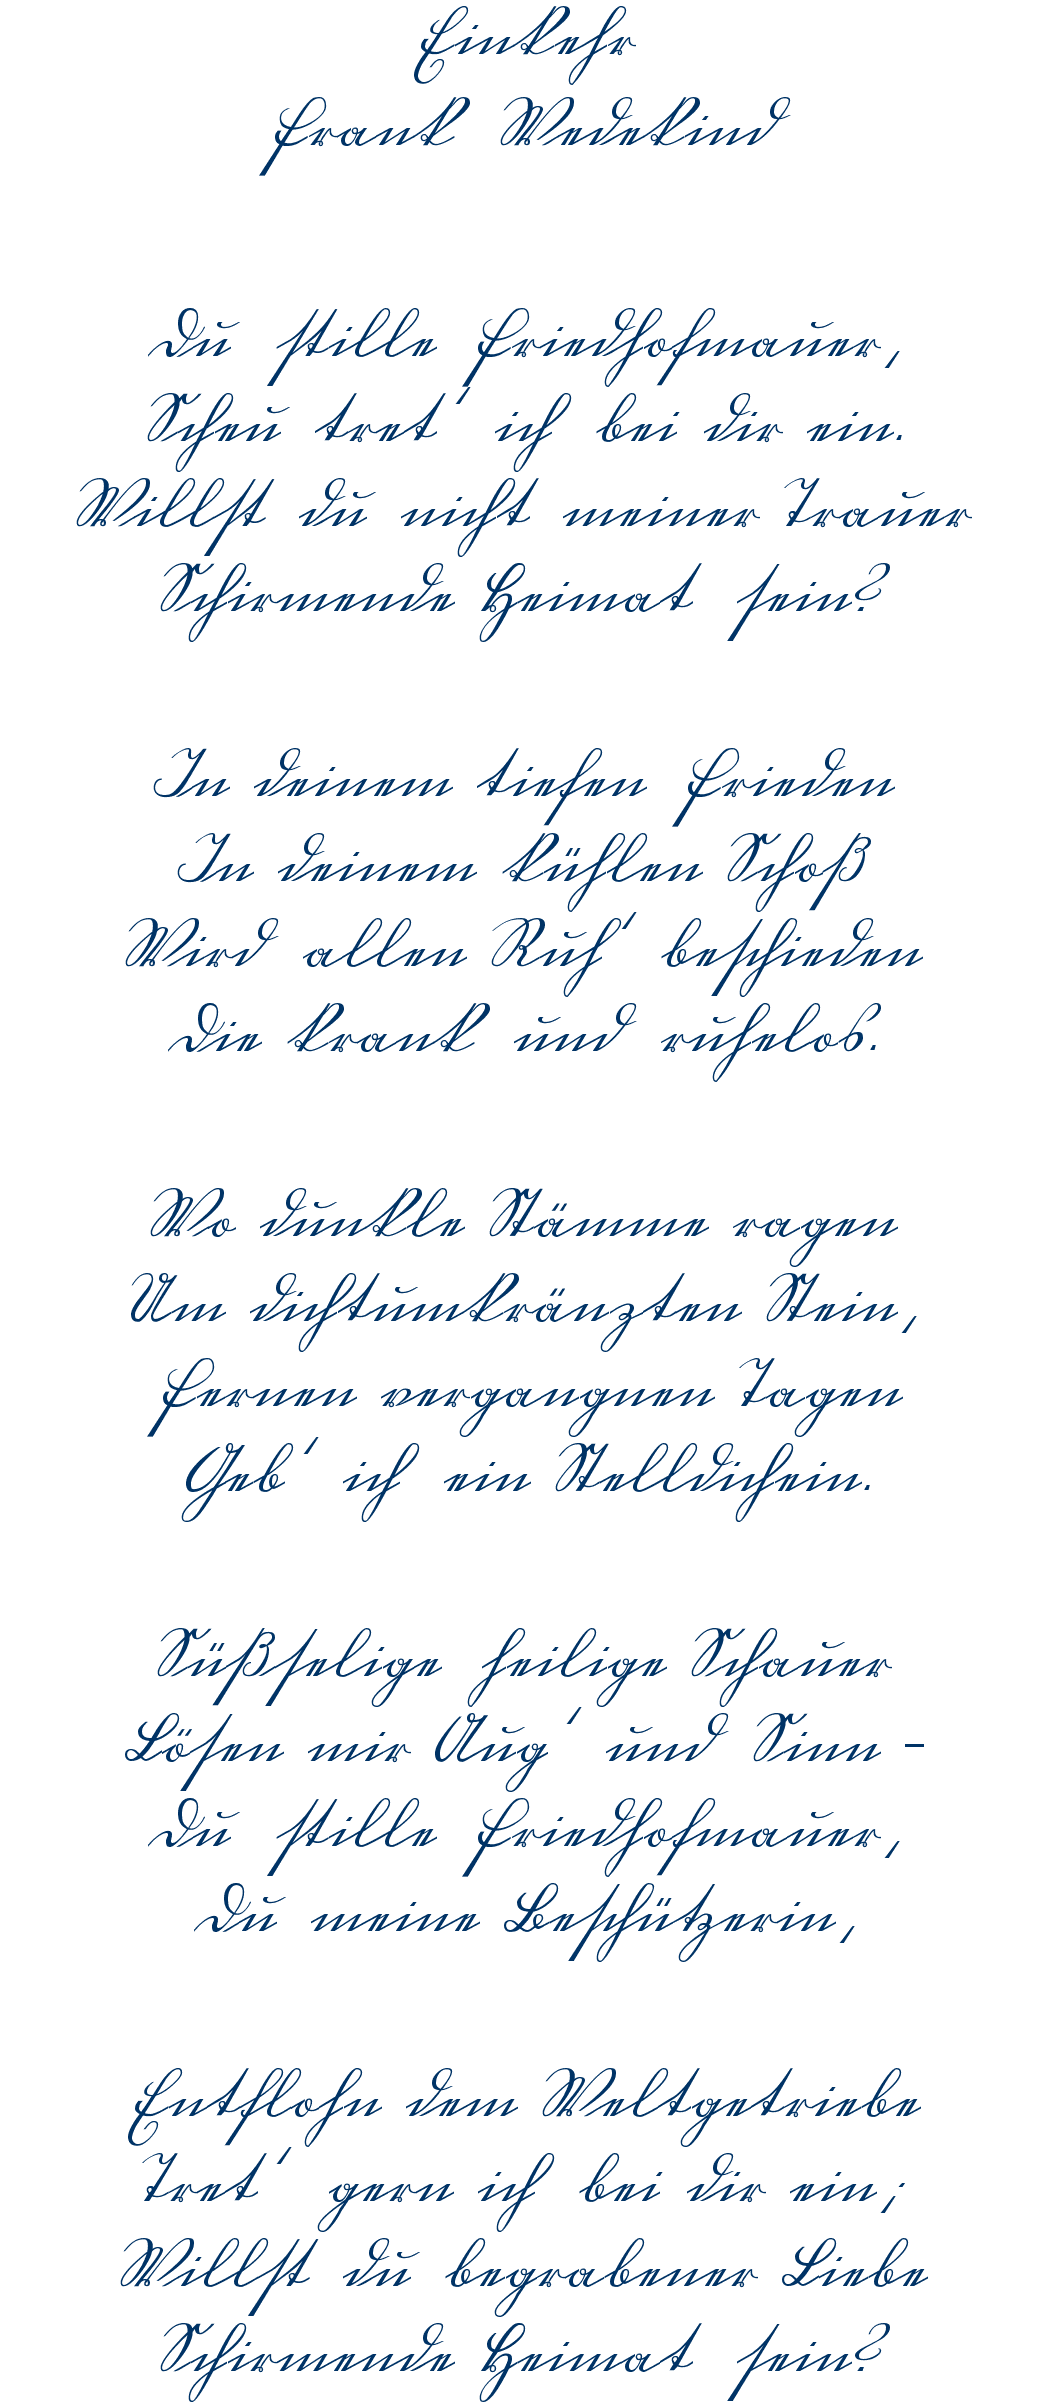 Einkehr
Frank Wedekind
Du stille Friedhofmauer,
Scheu tret' ich bei dir ein.
Willst du nicht meiner Trauer
Schirmende Heimat sein?
In deinem tiefen Frieden
In deinem kühlen Schoß
Wird allen Ruh' beschieden
Die krank und ruhelos.
Wo dunkle Stämme ragen
Um dichtumkränzten Stein,
Fernen vergangnen Tagen
Geb' ich ein Stelldichein.
Süßselige heilige Schauer
Lösen mir Aug' und Sinn -
Du stille Friedhofmauer,
Du meine Beschützerin,
Entflohn dem Weltgetriebe
Tret' gern ich bei dir ein;
Willst du begrabener Liebe
Schirmende Heimat sein?